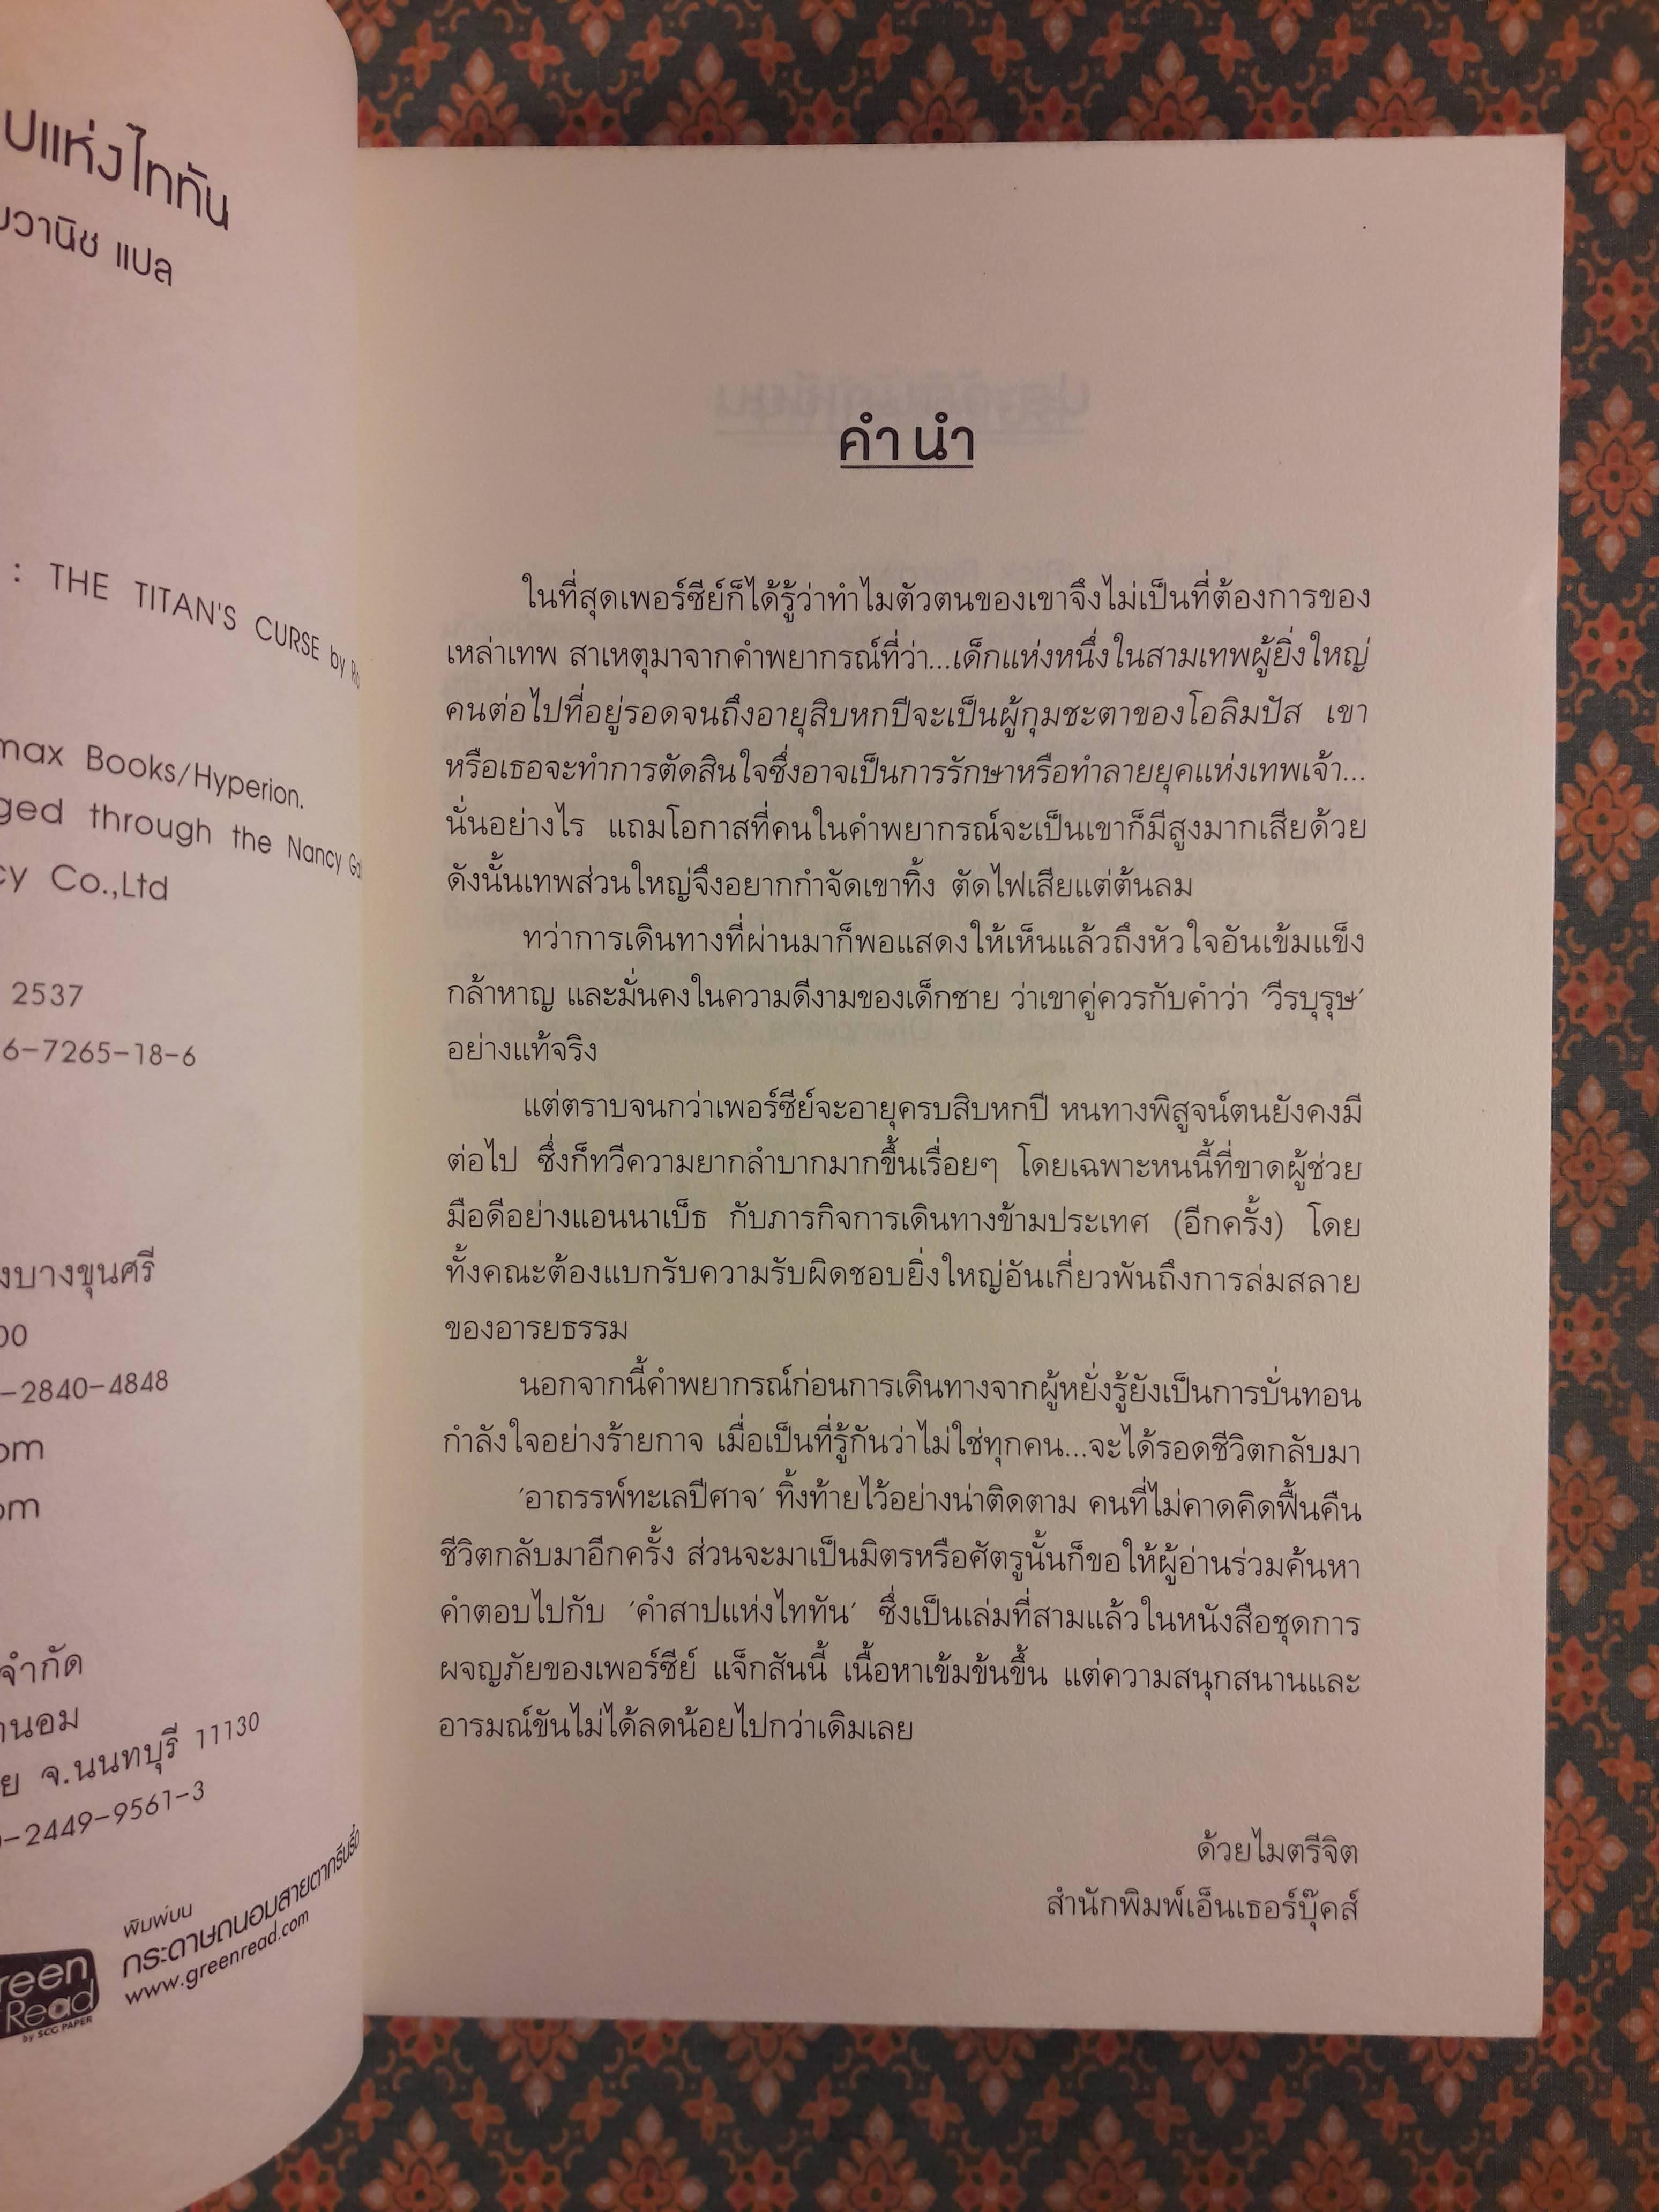 ปแห่งไททัน
วานิช แปล
: THE TITAN'S CURSE by
max Books/Hyperion.
ged through the Nancy
cy Co.,Ltd
2537
6-7265-18-6
งบางขุนศรี
00
-2840-4848
om
om
จำกัด
านอม
ย จ.นนทบุรี 11130
-2449-9561-3
พิมพ์บน
กระดาษถนอมสายตากรีนรี้ด
www.greenread.com
reen
Read
by SCG PAPER
คำนำ
ในที่สุดเพอร์ซีย์ก็ได้รู้ว่าทำไมตัวตนของเขาจึงไม่เป็นที่ต้องการของ
เหล่าเทพ สาเหตุมาจากคำพยากรณ์ที่ว่า...เด็กแห่งหนึ่งในสามเทพผู้ยิ่งใหญ่
คนต่อไปที่อยู่รอดจนถึงอายุสิบหกปีจะเป็นผู้กุมชะตาของโอลิมปัส เขา
หรือเธอจะทำการตัดสินใจซึ่งอาจเป็นการรักษาหรือทำลายยุคแห่งเทพเจ้า...
นั่นอย่างไร แถมโอกาสที่คนในคำพยากรณ์จะเป็นเขาก็มีสูงมากเสียด้วย
ดังนั้นเทพส่วนใหญ่จึงอยากกำจัดเขาทิ้ง ตัดไฟเสียแต่ต้นลม
ทว่าการเดินทางที่ผ่านมาก็พอแสดงให้เห็นแล้วถึงหัวใจอันเข้มแข็ง
กล้าหาญ และมั่นคงในความดีงามของเด็กชาย ว่าเขาคู่ควรกับคำว่า 'วีรบุรุษ'
อย่างแท้จริง
แต่ตราบจนกว่าเพอร์ซีย์จะอายุครบสิบหกปี หนทางพิสูจน์ตนยังคงมี
ต่อไป ซึ่งก็ทวีความยากลำบากมากขึ้นเรื่อยๆ โดยเฉพาะหนนี้ที่ขาดผู้ช่วย
มือดีอย่างแอนนาเบ็ธ กับภารกิจการเดินทางข้ามประเทศ (อีกครั้ง) โดย
ทั้งคณะต้องแบกรับความรับผิดชอบยิ่งใหญ่อันเกี่ยวพันถึงการล่มสลาย
ของอารยธรรม
นอกจากนี้คำพยากรณ์ก่อนการเดินทางจากผู้หยั่งรู้ยังเป็นการบั่นทอน
กำลังใจอย่างร้ายกาจ เมื่อเป็นที่รู้กันว่าไม่ใช่ทุกคน...จะได้รอดชีวิตกลับมา
'อาถรรพ์ทะเลปีศาจ' ทิ้งท้ายไว้อย่างน่าติดตาม คนที่ไม่คาดคิดฟื้นคืน
ชีวิตกลับมาอีกครั้ง ส่วนจะมาเป็นมิตรหรือศัตรูนั้นก็ขอให้ผู้อ่านร่วมค้นหา
คำตอบไปกับ 'คำสาปแห่งไททัน' ซึ่งเป็นเล่มที่สามแล้วในหนังสือชุดการ
ผจญภัยของเพอร์ซีย์ แจ็กสันนี้ เนื้อหาเข้มข้นขึ้น แต่ความสนุกสนานและ
อารมณ์ขันไม่ได้ลดน้อยไปกว่าเดิมเลย
ด้วยไมตรีจิต
สำนักพิมพ์เอ็นเธอร์บุ๊คส์